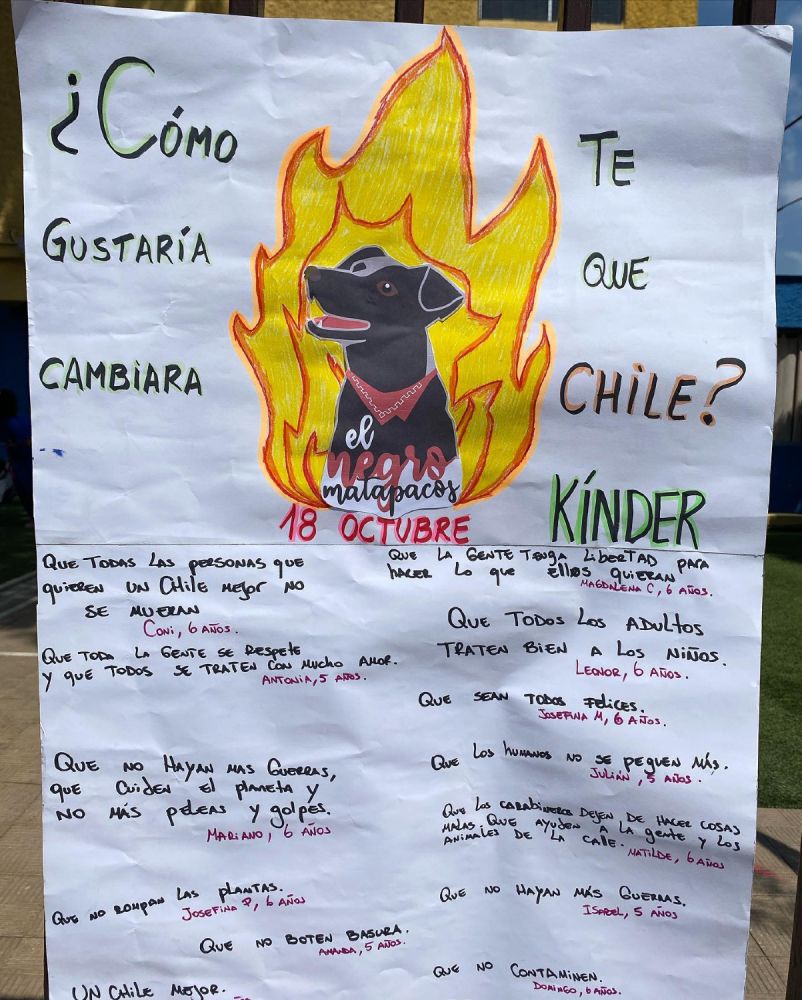 ¿CÓMO TE
GUSTARÍA QUE
CAMBIARA CHILE?
el
negro
matapacos
18 OCTUBRE
KÍNDER
QUE TODAS LAS PERSONAS QUE
QUIEREN UN CHILE MEJOR NO
SE MUERAN
CONI, 6 AÑOS.
QUE TODA LA GENTE SE RESPETE
Y QUE TODOS SE TRATEN CON MUCHO AMOR.
ANTONIA, 5 AÑOS.
QUE NO HAYAN MAS GUERRAS,
QUE CUIDEN EL PLANETA Y
NO MÁS PELEAS Y GOLPES.
MARIANO, 6 AÑOS
QUE NO ROMPAN LAS PLANTAS.
JOSEFINA P, 6 AÑOS
QUE NO BOTEN BASURA.
AMANDA, 5 AÑOS.
UN CHILE MEJOR.
QUE LA GENTE TENGA LIBERTAD PARA
HACER LO QUE ELLOS QUIERAN
MAGDALENA C, 6 AÑOS.
QUE TODOS LOS ADULTOS
TRATEN BIEN A LOS NIÑOS.
LEONOR, 6 AÑOS.
QUE SEAN TODOS FELICES.
JOSEFINA M, 6 AÑOS.
QUE LOS HUMANOS NO SE PEGUEN MÁS.
JULIÁN, 5 AÑOS.
QUE LOS CARABINEROS DEJEN DE HACER COSAS
MALAS QUE AYUDEN A LA GENTE Y LOS
ANIMALES DE LA CALLE. MATILDE, 6 AÑOS
QUE NO HAYAN MÁS GUERRAS.
ISABEL, 5 AÑOS
QUE NO CONTAMINEN.
DOMINGO, 6 AÑOS.